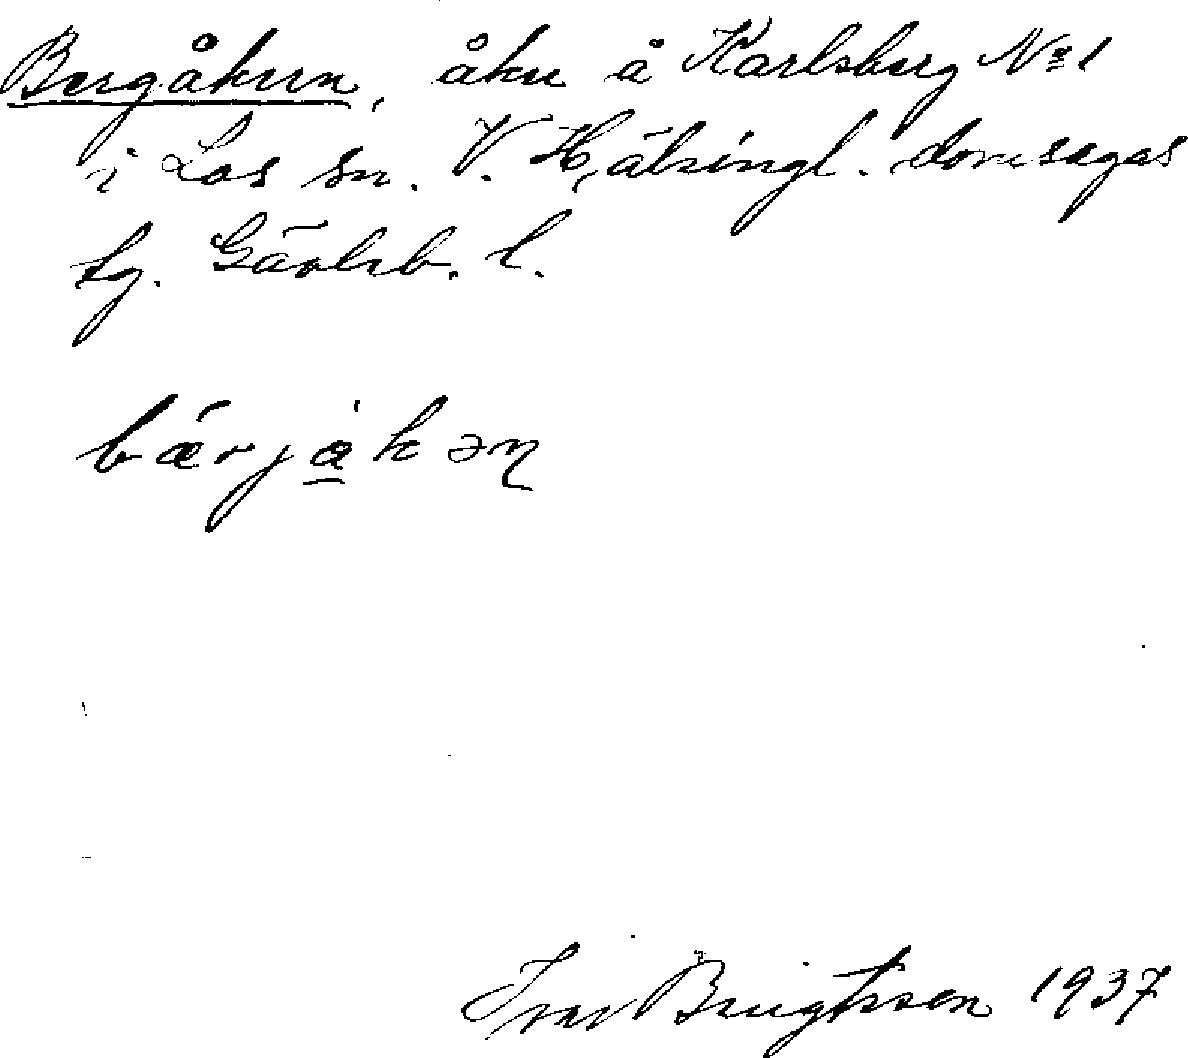 Bergåkern, åker å Karlsberg No 1
i Los sn. V. Hälsingl. domsagas
tg. Gävleb. l.
bærjåkəɳ
Ivar Bengtsson 1937